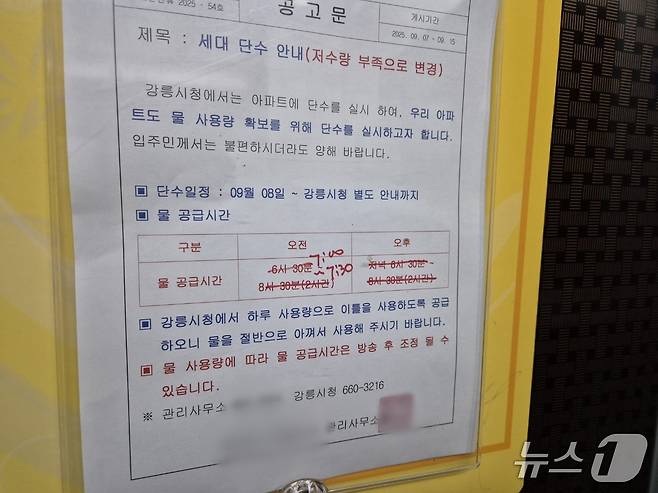 2025 - 54호
공 고 문
게시기간
2025. 09. 07 ~ 09. 15
제목 : 세대 단수 안내(저수량 부족으로 변경)
강릉시청에서는 아파트에 단수를 실시 하여, 우리 아파
트도 물 사용량 확보를 위해 단수를 실시하고자 합니다.
입주민께서는 불편하시더라도 양해 바랍니다.
▣ 단수일정 : 09월 08일 ~ 강릉시청 별도 안내까지
▣ 물 공급시간
구분 오전 오후
물 공급시간 6시 30분 ~ 8시 30분(2시간) 7:00 ~7:30 저녁 6시 30분 ~ 8시 30분(2시간)
▣ 강릉시청에서 하루 사용량으로 이틀을 사용하도록 공급
하오니 물을 절반으로 아껴서 사용해 주시기 바랍니다.
▣ 물 사용량에 따라 물 공급시간은 방송 후 조정 될 수
있습니다.
※ 관리사무소 강릉시청 660-3216
관리사무소
뉴스1